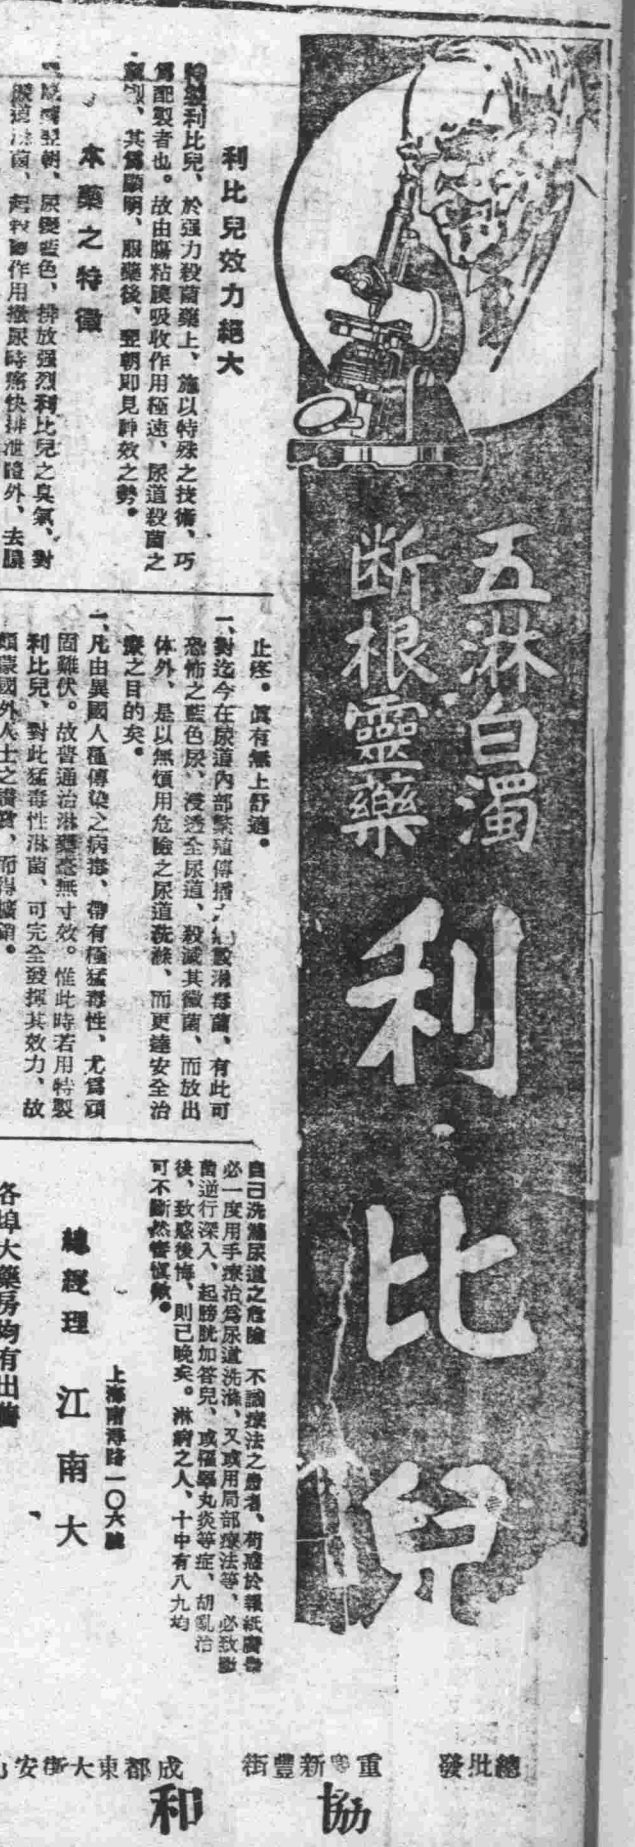 五淋白濁
断根靈藥
利比兒
利比兒效力絕大
特製利比兒、於强力殺菌藥上、施以特殊之技術、巧
爲配製者也。故由腸粘膜吸收作用極速、尿道殺菌之
其爲顯明、服藥後、翌朝即見神效之勢。
本藥之特徵
翌朝、尿變藍色、排放强烈利比兒之臭氣、對
作用撒尿時痛快排泄體外、去膿
止疼。眞有無上舒適。
一、對迄今在尿道內部繁殖傳播之 淋毒菌、有此可
恐怖之藍色尿、浸透全尿道、殺滅其黴菌、而放出
体外、是以無煩用危險之尿道洗滌、而更達安全治
療之目的矣。
一、凡由異國人種傳染之病毒、帶有極猛毒性、尤爲頑
固難伏。故普通治淋藥毫無寸效。惟此時若用特製
利比兒、對此猛毒性淋菌、可完全發揮其效力、故
頗蒙國外人士之讚賞、而得擴銷。
自己洗滌尿道之危險 不諳療法之患者、苟惑於報紙廣告
必一度用手療治爲尿道洗滌、又或用局部療法等、必致
菌逆行深入、起膀胱加答兒、或罹睾丸炎等症、胡亂治
後、致感後悔、則已晚矣。淋病之人、十中有八九均
可不斷然審慎歟。
上海南潯路一〇六號
總經理 江南大
各埠大藥房均有出售
總批發 重 新豐街 成都東大街安
協和